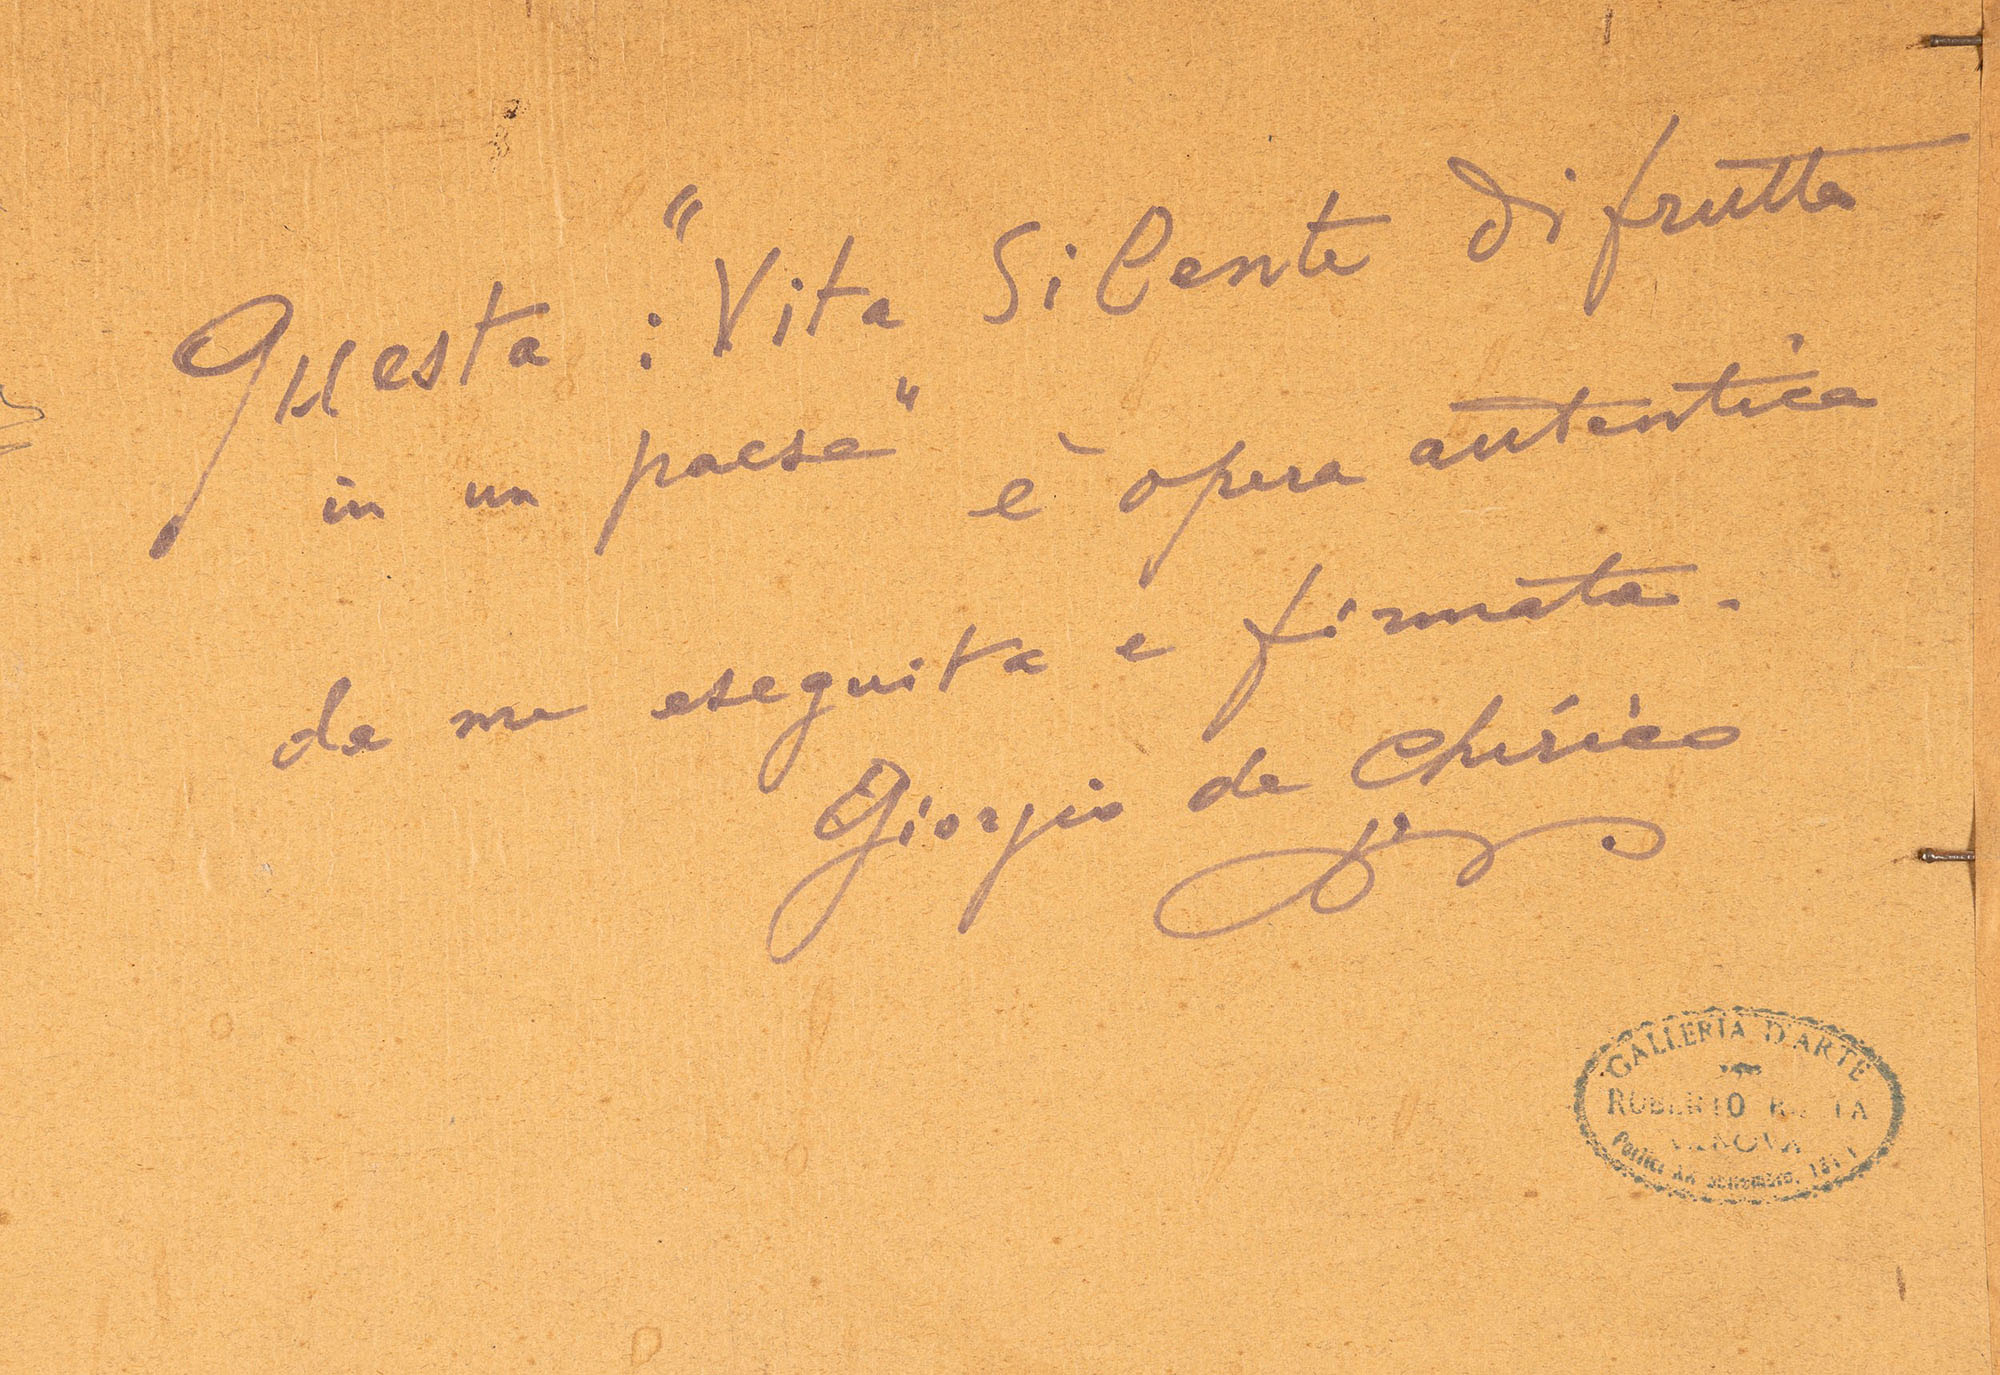 Questa : "Vita Silente di frutta
in un paese" è opera autentica
da me eseguita e firmata.
Giorgio de Chirico
GALLERIA D'ARTE
ROBERTO
Portici settembre,